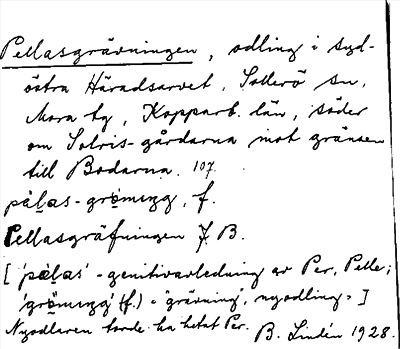 Pellasgrävningen, odling i syd-
östra Häradsarvet, Sollerö sn,
Mora tg, Kopparb. län, söder
om Solvis-gårdarna mot gränsen
till Bodarna. 107.
pàlas- f.
Pellasgräfningen J. B.
['pàlas' - genitivavledning av Per, Pelle;
(f.) = 'grävning', nyodling.]
Nyodlaren torde ha hetat Per. B. Lindén 1928.